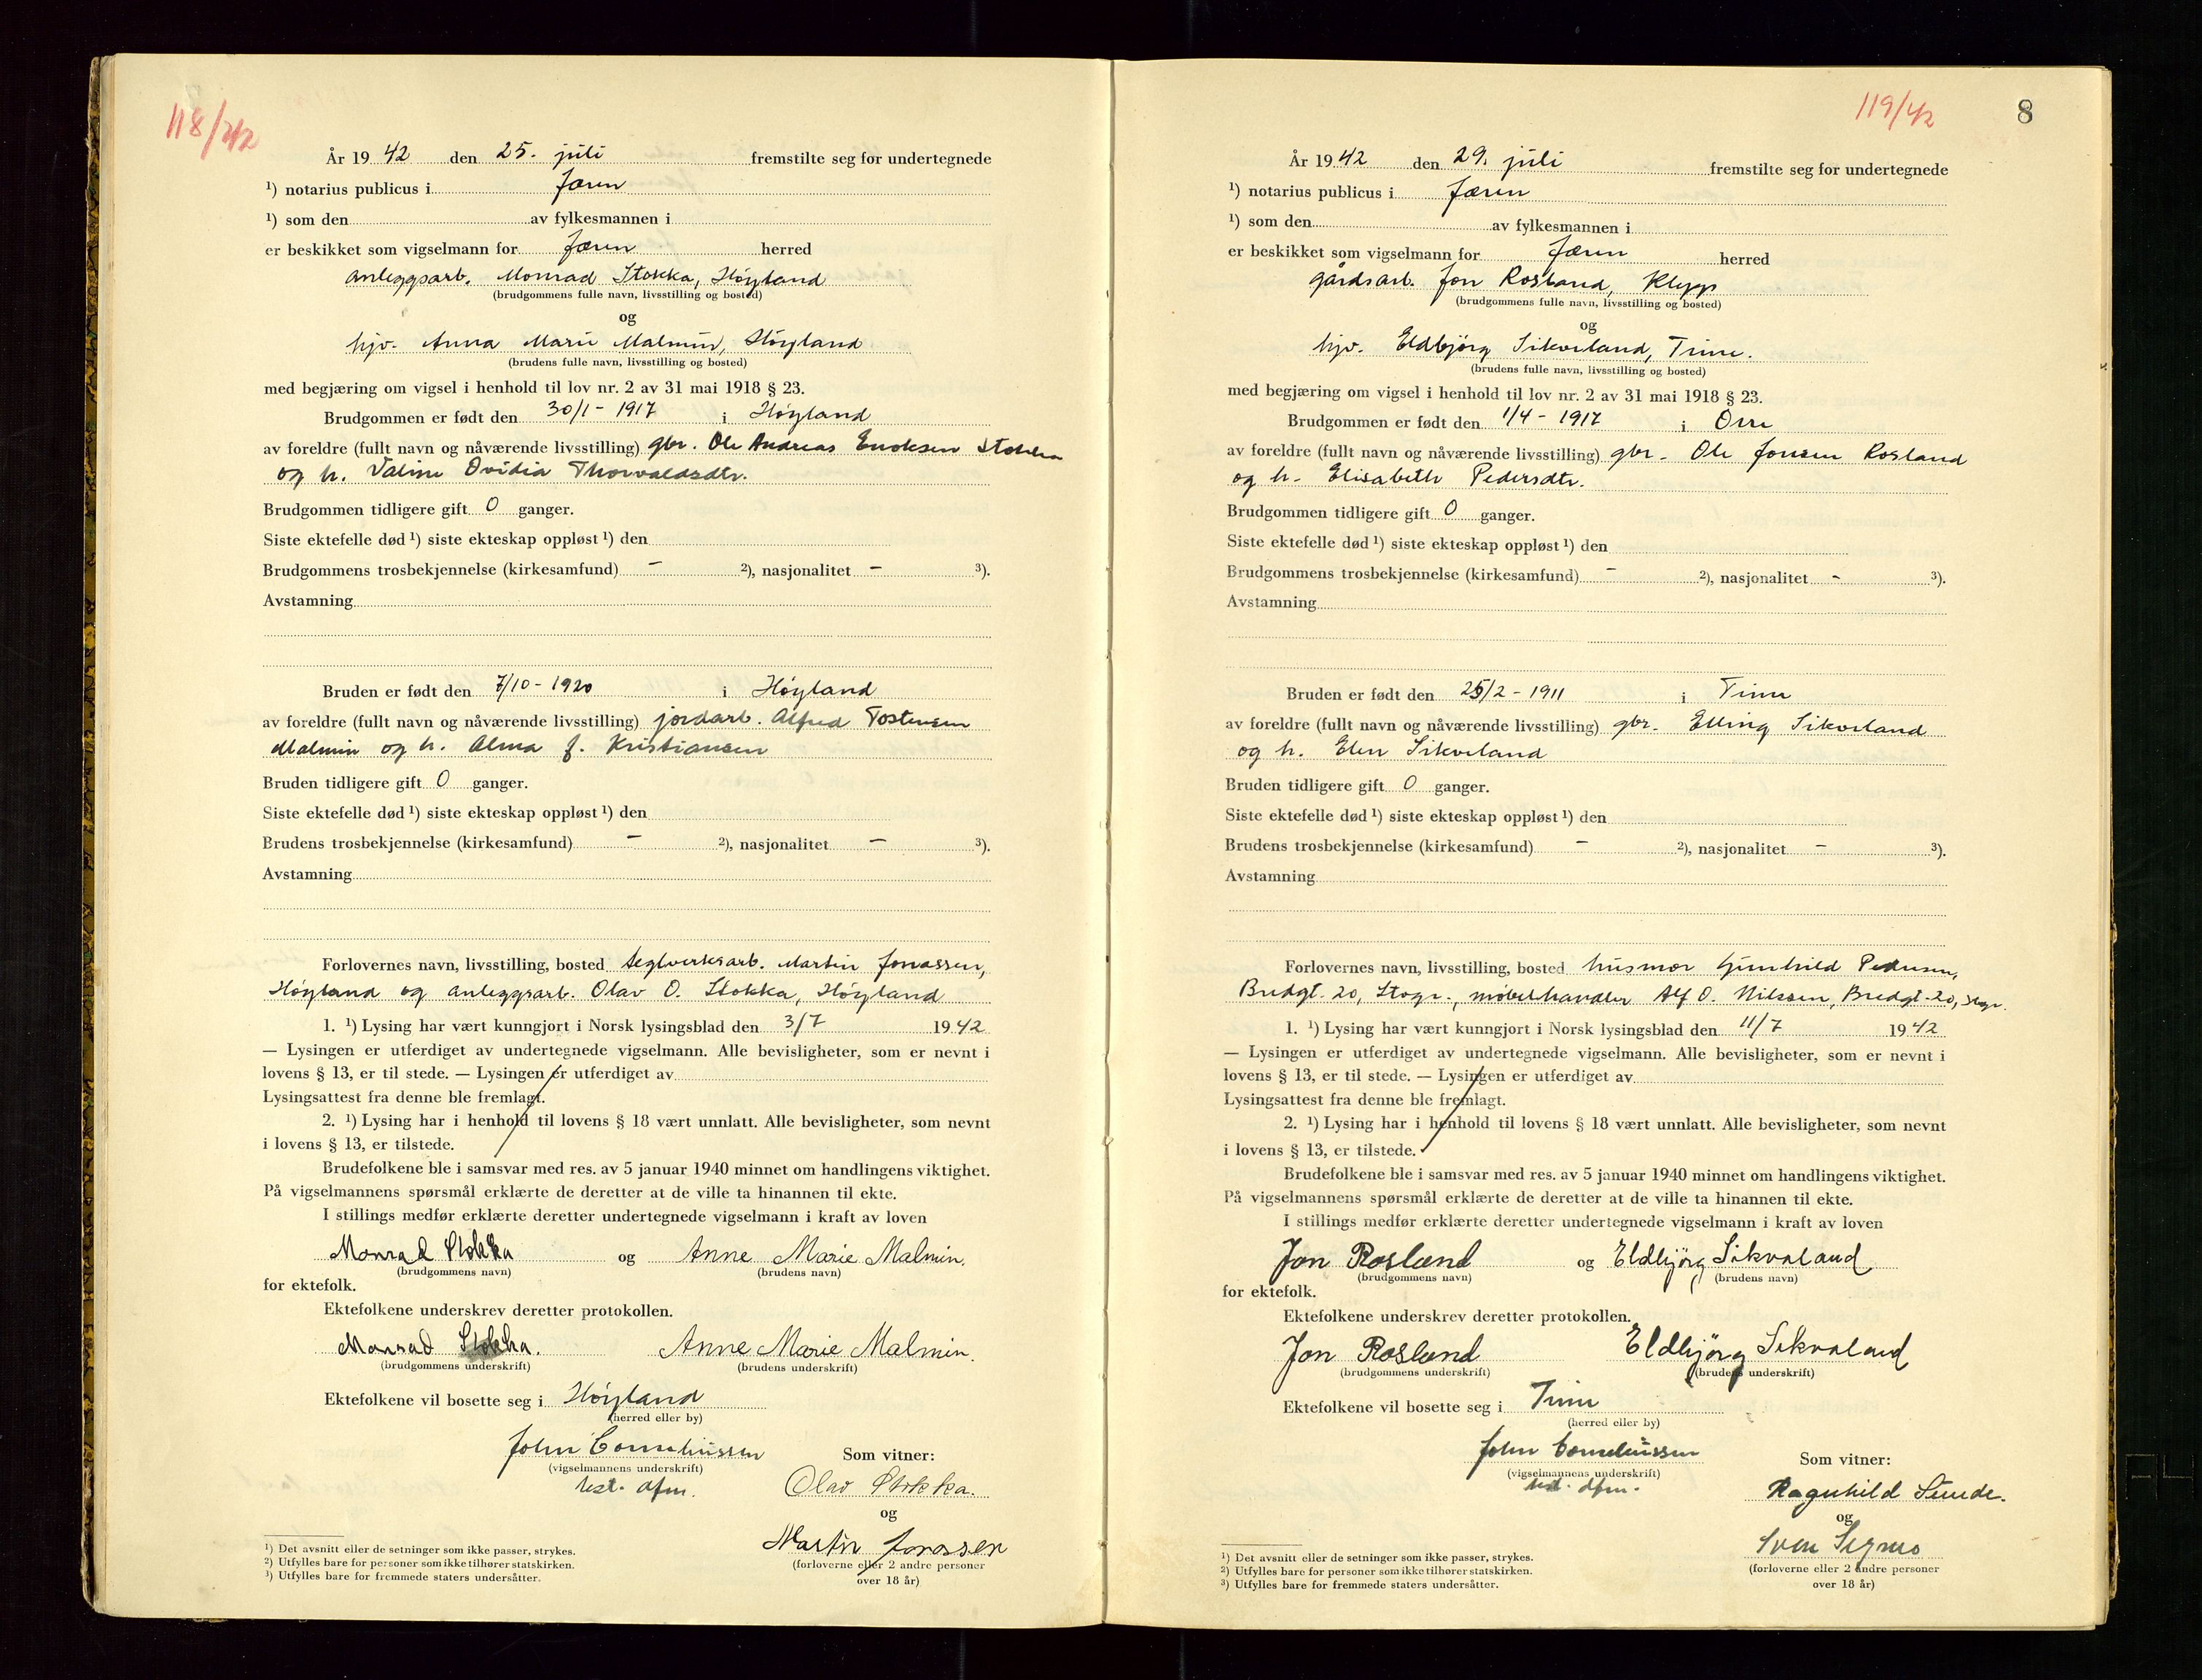 118/42
År 19 42 den 25. juli fremstilte seg for undertegnede
¹) notarius publicus i Jæren
¹) som den av fylkesmannen i
er beskikket som vigselmann for Jæren herred
anleggsarb. Monrad Stokka, Høyland
(brudgommens fulle navn, livsstilling og bosted)
og
hjv. Anna Marie Malmin, Høyland
(brudens fulle navn, livsstilling og bosted)
med begjæring om vigsel i henhold til lov nr. 2 av 31 mai 1918 § 23.
Brudgommen er født den 30/1 - 1917 i Høyland
av foreldre (fullt navn og nåværende livsstilling) gbr. Ole Andreas Enoksen Stokka
og h. Valine Ovidia Thorvaldsdtr.
Brudgommen tidligere gift 0 ganger.
Siste ektefelle død ¹) siste ekteskap oppløst ¹) den
Brudgommens trosbekjennelse (kirkesamfund) – ²), nasjonalitet – ³).
Avstamning
Bruden er født den 7/10 - 1920 i Høyland
av foreldre (fullt navn og nåværende livsstilling) jordarb. Alfred Tostensen
Malmin og h. Alma J. Kristiansen
Bruden tidligere gift 0 ganger.
Siste ektefelle død ¹) siste ekteskap oppløst ¹) den
Brudens trosbekjennelse (kirkesamfund) – ²), nasjonalitet – ³).
Avstamning
Forlovernes navn, livsstilling, bosted teglverksarb. Martin Jonassen,
Høyland og anleggsarb. Olav O. Stokka, Høyland
1. ¹) Lysing har vært kunngjort i Norsk lysingsblad den 3/7 19 42
— Lysingen er utferdiget av undertegnede vigselmann. Alle bevisligheter, som er nevnt i
lovens § 13, er til stede. — Lysingen er utferdiget av
Lysingsattest fra denne ble fremlagt.
2. ¹) Lysing har i henhold til lovens § 18 vært unnlatt. Alle bevisligheter, som nevnt
i lovens § 13, er tilstede.
Brudefolkene ble i samsvar med res. av 5 januar 1940 minnet om handlingens viktighet.
På vigselmannens spørsmål erklærte de deretter at de ville ta hinannen til ekte.
I stillings medfør erklærte deretter undertegnede vigselmann i kraft av loven
Monrad Stokka og Anne Marie Malmin.
(brudgommens navn) (brudens navn)
for ektefolk.
Ektefolkene underskrev deretter protokollen.
Monrad Stokka. Anne Marie Malmin.
(brudgommens underskrift) (brudens underskrift)
Ektefolkene vil bosette seg i Høyland
(herred eller by)
John Corneliussen Som vitner:
(vigselmannens underskrift)
kst. dfm. Olav Stokka.
og
Martin Jonassen
(forloverne eller 2 andre personer
over 18 år)
¹) Det avsnitt eller de setninger som ikke passer, strykes.
²) Utfylles bare for personer som ikke tilhører statskirken.
³) Utfylles bare for fremmede staters undersåtter.
119/42 8
År 19 42 den 29. juli fremstilte seg for undertegnede
¹) notarius publicus i Jæren
¹) som den av fylkesmannen i
er beskikket som vigselmann for Jæren herred
gårdsarb. Jon Rosland, Klepp
(brudgommens fulle navn, livsstilling og bosted)
og
hjv. Eldbjörg Sikveland, Time.
(brudens fulle navn, livsstilling og bosted)
med begjæring om vigsel i henhold til lov nr. 2 av 31 mai 1918 § 23.
Brudgommen er født den 1/4 - 1917 i Orre
av foreldre (fullt navn og nåværende livsstilling) gbr. Ole Jonsen Rosland
og h. Elisabeth Pedersdtr.
Brudgommen tidligere gift 0 ganger.
Siste ektefelle død ¹) siste ekteskap oppløst ¹) den
Brudgommens trosbekjennelse (kirkesamfund) – ²), nasjonalitet – ³).
Avstamning
Bruden er født den 25/2 - 1911 i Time
av foreldre (fullt navn og nåværende livsstilling) gbr. Elling Sikveland
og h. Elen Sikveland
Bruden tidligere gift 0 ganger.
Siste ektefelle død ¹) siste ekteskap oppløst ¹) den
Brudens trosbekjennelse (kirkesamfund) – ²), nasjonalitet – ³).
Avstamning
Forlovernes navn, livsstilling, bosted husmor Gunhild Pedersen,
Bredgt. 20, Stvgr., møbelhandler Alf O. Nilssen, Bredgt. 20,
1. ¹) Lysing har vært kunngjort i Norsk lysingsblad den 11/7 19 42
— Lysingen er utferdiget av undertegnede vigselmann. Alle bevisligheter, som er nevnt i
lovens § 13, er til stede. — Lysingen er utferdiget av
Lysingsattest fra denne ble fremlagt.
2. ¹) Lysing har i henhold til lovens § 18 vært unnlatt. Alle bevisligheter, som nevnt
i lovens § 13, er tilstede.
Brudefolkene ble i samsvar med res. av 5 januar 1940 minnet om handlingens viktighet.
På vigselmannens spørsmål erklærte de deretter at de ville ta hinannen til ekte.
I stillings medfør erklærte deretter undertegnede vigselmann i kraft av loven
Jon Rosland og Eldbjörg Sikvaland
(brudgommens navn) (brudens navn)
for ektefolk.
Ektefolkene underskrev deretter protokollen.
Jon Rosland Eldbjörg Sikvaland
(brudgommens underskrift) (brudens underskrift)
Ektefolkene vil bosette seg i Time
(herred eller by)
John Corneliussen Som vitner:
(vigselmannens underskrift)
kst. dfm. Ragnhild Sunde.
og
Sven
(forloverne eller 2 andre personer
over 18 år)
¹) Det avsnitt eller de setninger som ikke passer, strykes.
²) Utfylles bare for personer som ikke tilhører statskirken.
³) Utfylles bare for fremmede staters undersåtter.